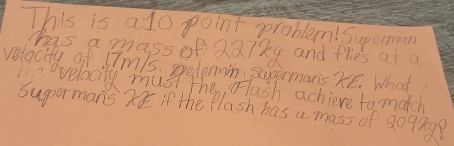 This is a 10 point problem! Superman
has a mass of 227kg and flies at a
velocity of 17m/s. Determin Supermans KE. What
velocity must the Flash achieve to match
supermans KE if the flash has a mass of 209kg?